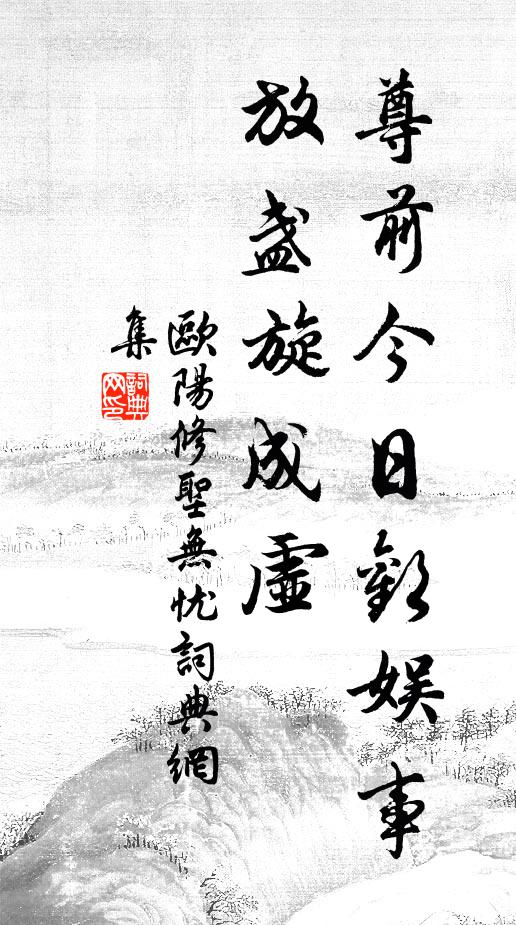 尊前今日歡娛事
放盞旋成虛
歐陽修聖無忧詞典網
集
詞典
网印